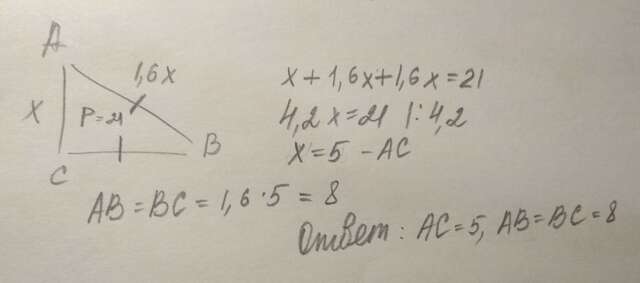 A
1,6x
x
P=21
B
C
x+1,6x+1,6x=21
4,2x=21 |:4,2
x=5 – AC
AB=BC=1,6·5=8
Ответ: AC=5, AB=BC=8